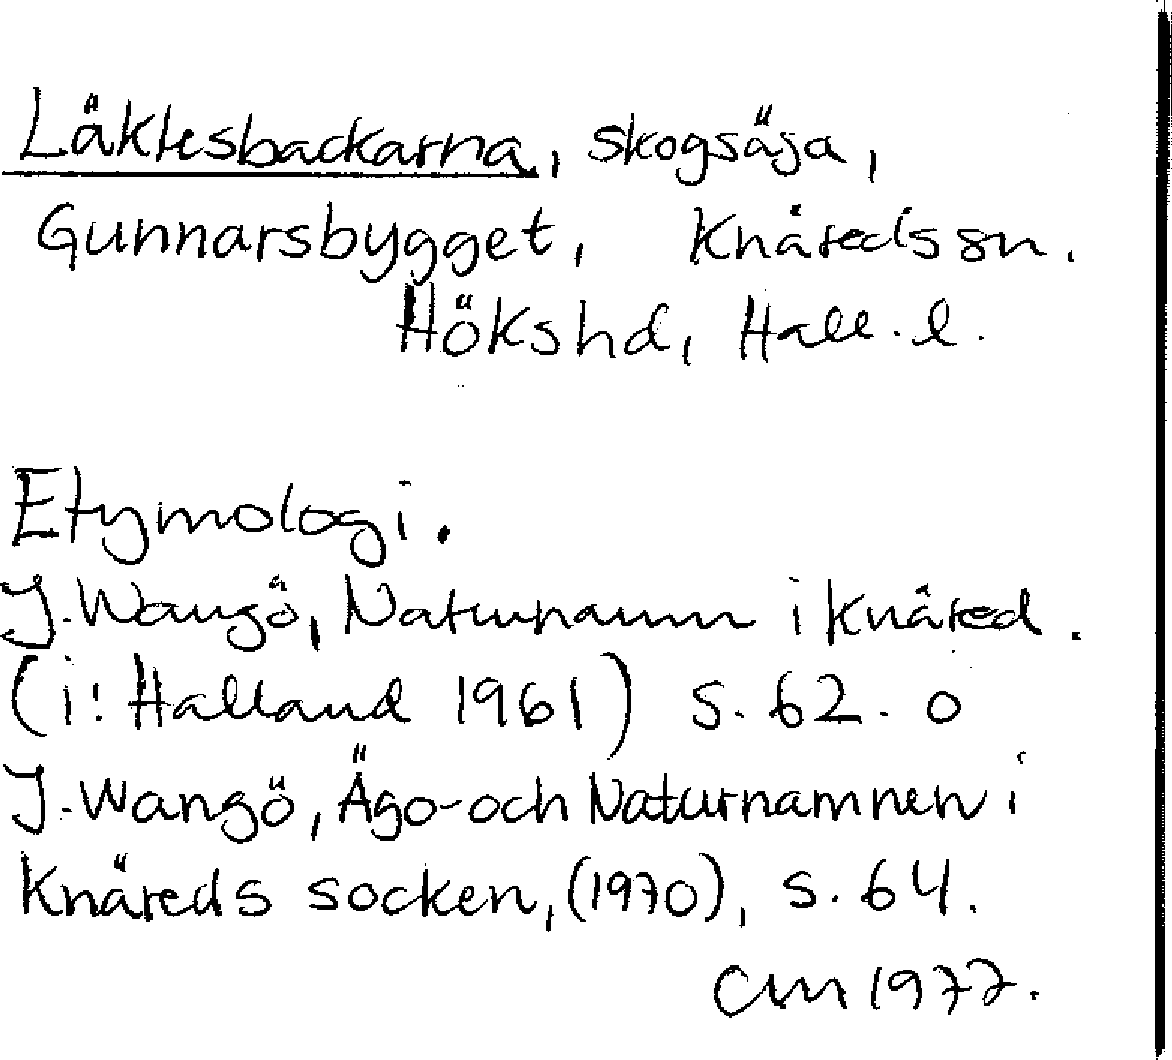 Läktesbackarna, skogsäga,
Gunnarsbygget, Knäreds sn.
Hökshd, Hall. l.
Etymologi.
J. Wangö, Naturnamn i Knäred.
(i: Halland 1961) s. 62. o
J. Wangö, Ägo- och Naturnamnen i
Knäreds socken, (1970), s. 64.
CM 1977.